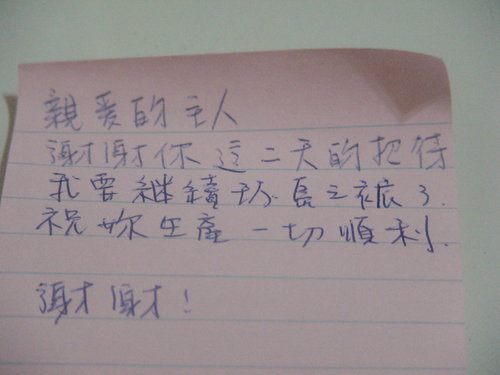 親爱的主人
謝謝你這二天的招待
我要繼續環島之旅了.
祝妳生產一切順利.
謝謝!